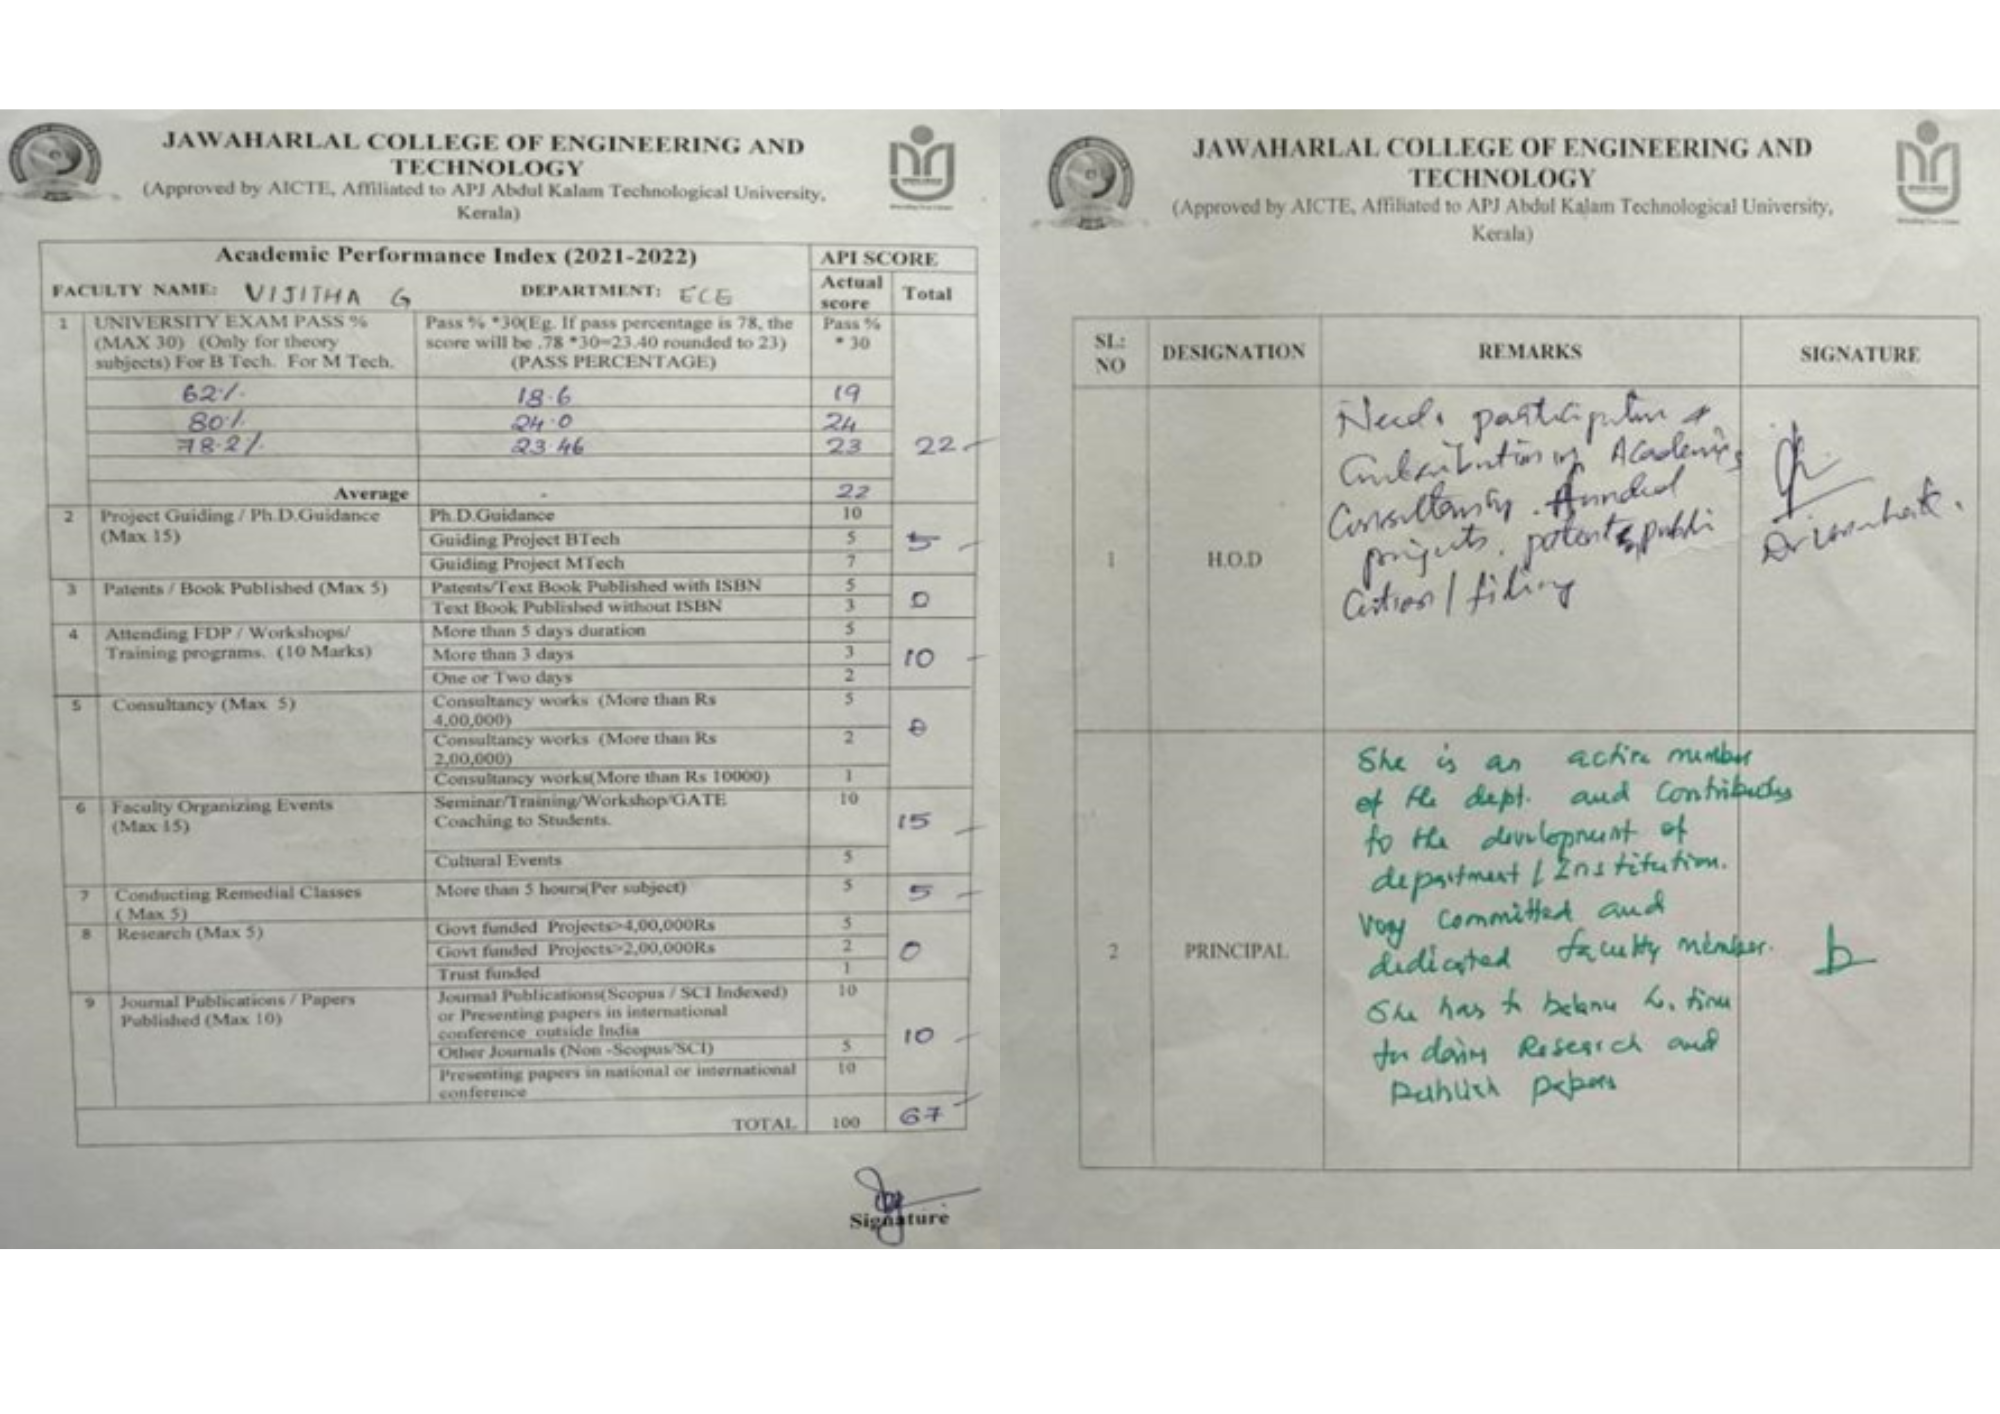 JAWAHARLAL COLLEGE OF ENGINEERING AND
TECHNOLOGY
(Approved by AICTE, Affiliated to APJ Abdul Kalam Technological University,
Kerala)
Academic Performance Index (2021-2022)
API SCORE
FACULTY NAME: VIJITHA G
DEPARTMENT: ECE
Actual
score
Total
1
UNIVERSITY EXAM PASS %
(MAX 30) (Only for theory
subjects) For B Tech. For M Tech.
Pass % *30(Eg. If pass percentage is 78, the
score will be .78 *30=23.40 rounded to 23)
(PASS PERCENTAGE)
Pass %
* 30
62% 18.6 19
80% 24.0 24
78.2% 23.46 23 22
Average - 22
2
Project Guiding / Ph.D.Guidance
(Max 15)
Ph.D.Guidance 10
Guiding Project BTech 5
Guiding Project MTech 7
5
3
Patents / Book Published (Max 5)
Patents/Text Book Published with ISBN 5
Text Book Published without ISBN 3
0
4
Attending FDP / Workshops/
Training programs. (10 Marks)
More than 5 days duration 5
More than 3 days 3
One or Two days 2
10
5
Consultancy (Max 5)
Consultancy works (More than Rs
4,00,000)
5
Consultancy works (More than Rs
2,00,000)
2
Consultancy works(More than Rs 10000) 1
0
6
Faculty Organizing Events
(Max 15)
Seminar/Training/Workshop/GATE
Coaching to Students.
10
Cultural Events 5
15
7
Conducting Remedial Classes
( Max 5)
More than 5 hours(Per subject) 5
5
8
Research (Max 5)
Govt funded Projects>4,00,000Rs 5
Govt funded Projects>2,00,000Rs 2
Trust funded 1
0
9
Journal Publications / Papers
Published (Max 10)
Journal Publications(Scopus / SCI Indexed)
or Presenting papers in international
conference outside India
10
Other Journals (Non -Scopus/SCI) 5
Presenting papers in national or international
conference
10
10
TOTAL 100 67
Signature
JAWAHARLAL COLLEGE OF ENGINEERING AND
TECHNOLOGY
(Approved by AICTE, Affiliated to APJ Abdul Kalam Technological University,
Kerala)
SL:
NO
DESIGNATION
REMARKS
SIGNATURE
1
H.O.D
Needs participation &
Contribution in Academics
Consultancy. funded
projects, patents, publi
cation / filing
2
PRINCIPAL
She is an active member
of the dept. and Contributes
to the development of
department / Institution.
Very Committed and
dedicated faculty member.
She has to time
for doing Research and
Publish papers